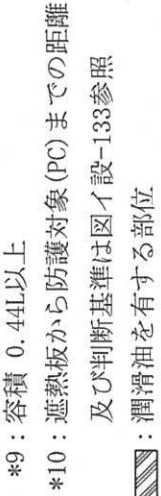 *9：容積 0.44L以上
*10：遮熱板から防護対象(PC)までの距離
及び判断基準は図イ設-133参照
：潤滑油を有する部位